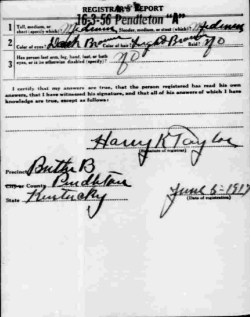 REGISTRAR'S REPORT
36-3-56 Pendleton "A"
1 Tall, medium, or short (specify which)? Medium Slender, medium, or stout (which)? Medium
2 Color of eyes? Dark Br Color of hair? Light Brown Bald? No
3 Has person lost arm, leg, hand, foot, or both eyes, or is he otherwise disabled (specify)? No
I certify that my answers are true, that the person registered has read his own answers, that I have witnessed his signature, and that all of his answers of which I have knowledge are true, except as follows:
Harry K Taylor
(Signature of registrar)
Precinct Butler B
City or County Pendleton
State Kentucky
June 5-1917
(Date of registration)